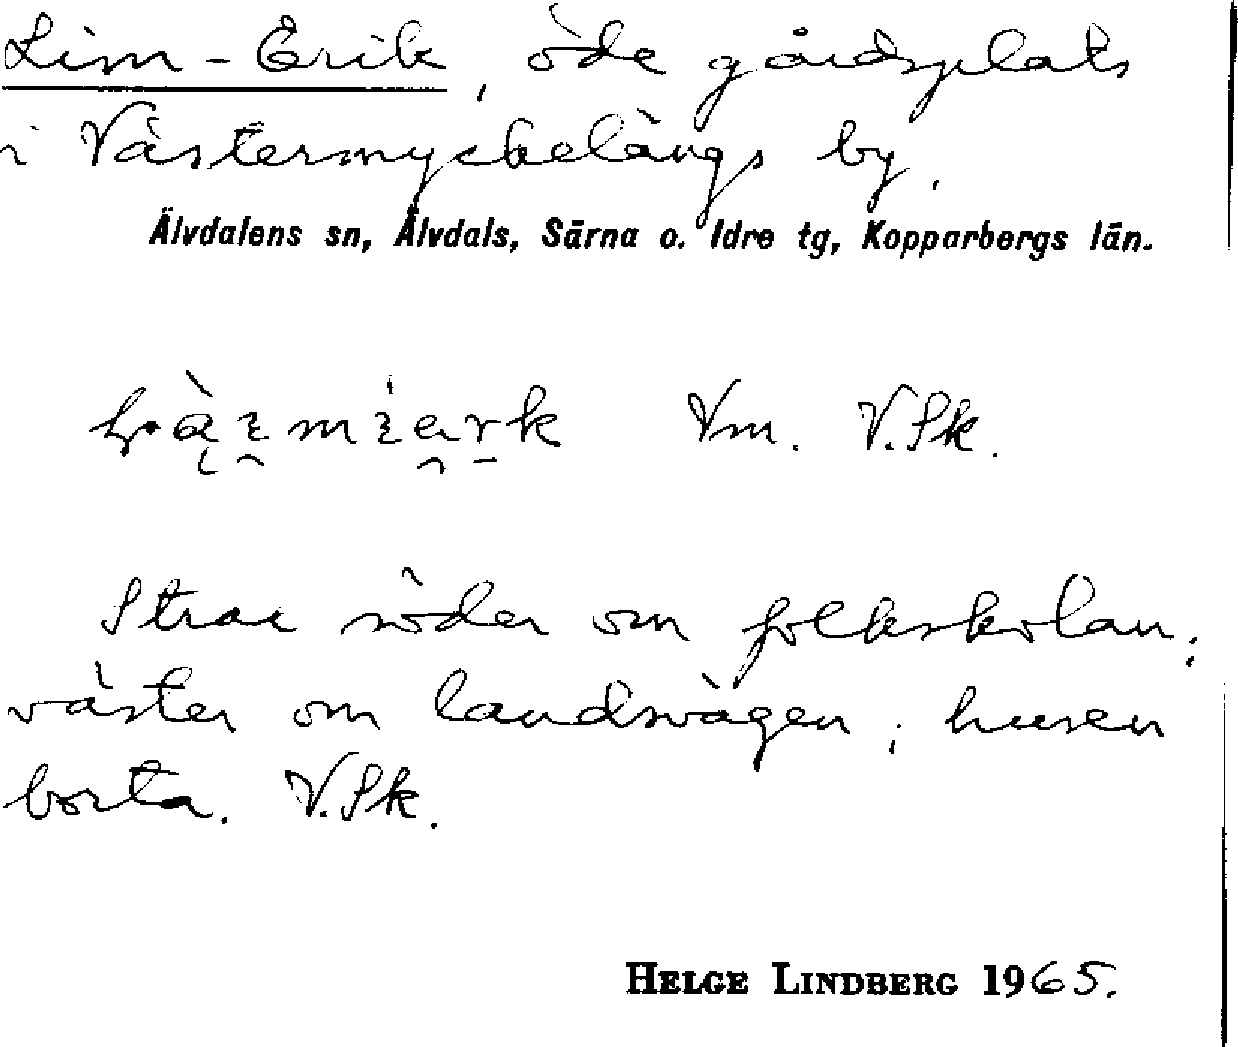 Lim-Erik, öde gårdsplats
i Västermyckelängs by.
Älvdalens sn, Älvdals, Särna o. Idre tg, Kopparbergs län.
Vm. V.Sk.
Strax söder om folkskolan;
väster om landsvägen; husen
borta. V.Sk.
HELGE LINDBERG 1965.